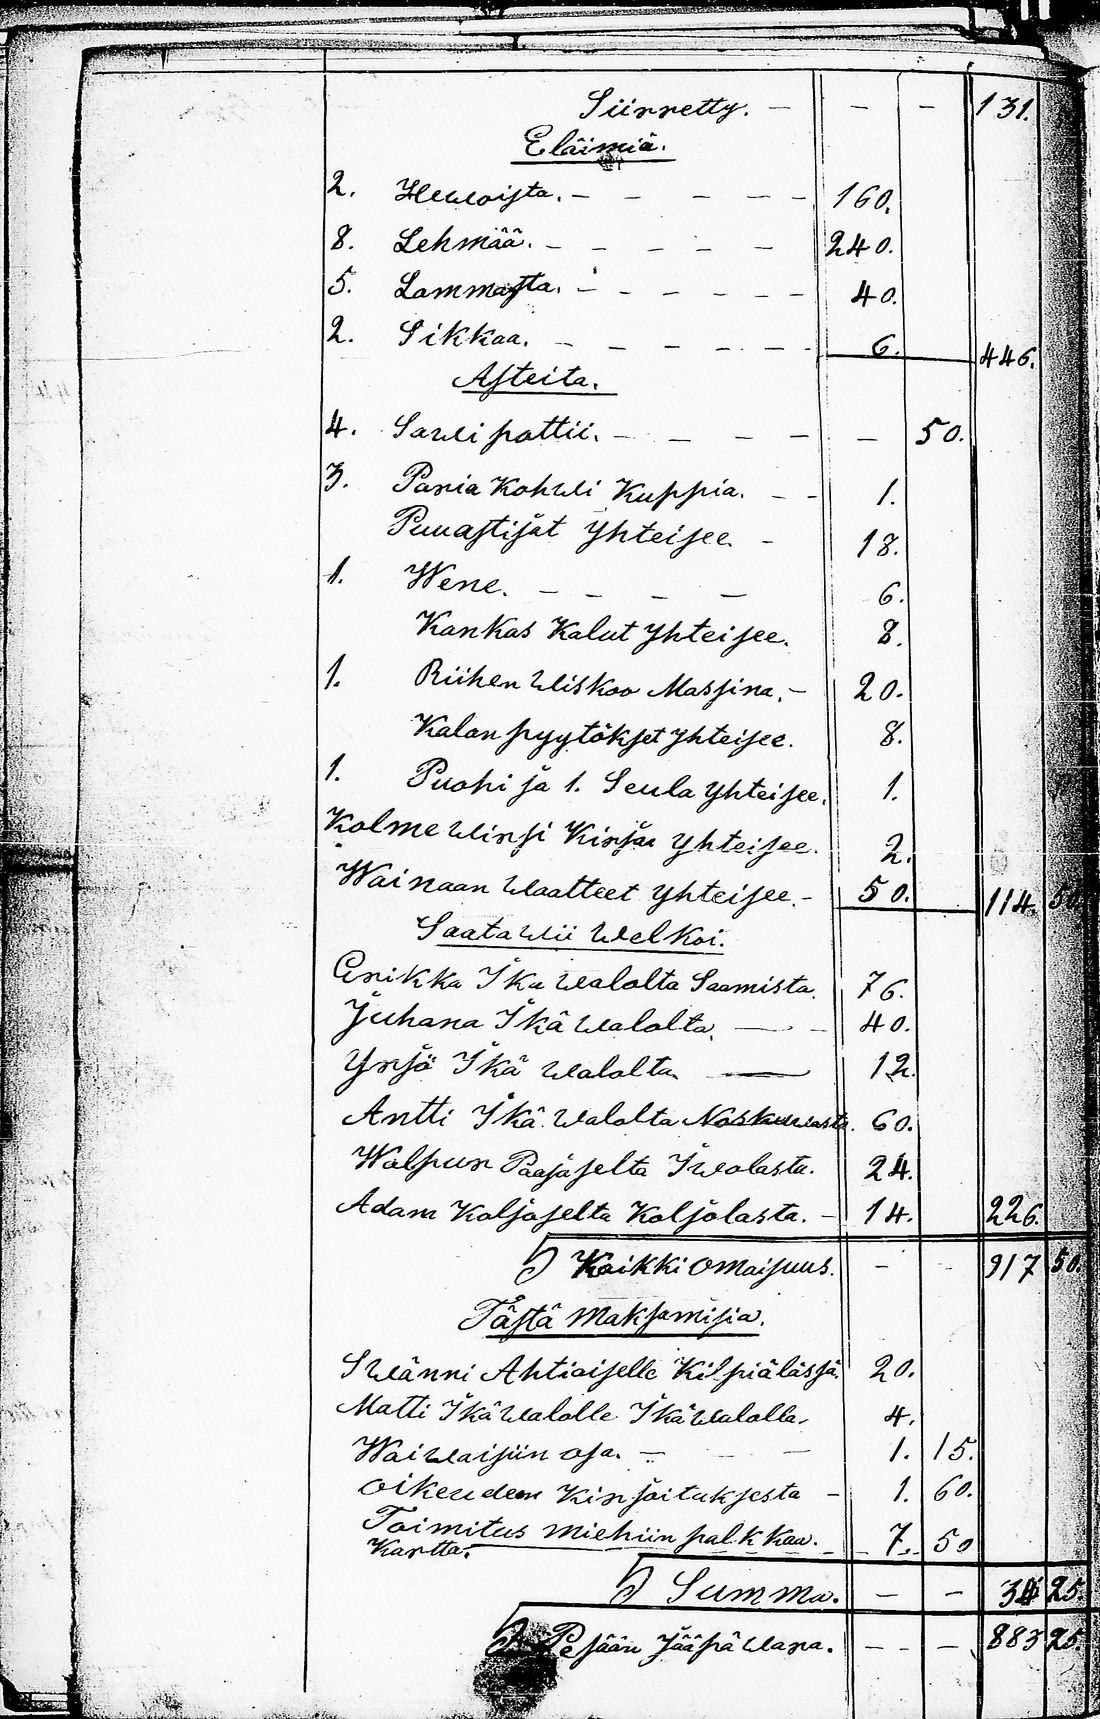 Siirretty. - - - 131.
Eläimiä.
2. Hewoista. - - - - - - 160.
8. Lehmää. - - - - - 240.
5. Lammasta. - - - - - - 40.
2. Sikkaa. - - - - - - 6. 446.
Asteita.
4. Sawi pottii. - - - - - 50.
3. Paria Kohwi Kuppia. - - 1.
Puuastijat Yhteisee. - 18.
1. Wene. - - - - 6.
Kankas Kalut Yhteisee. 8.
1. Riihen Wiskoo Massina. - 20.
Kalan pyytökset Yhteisee. 8.
1. Puohi ja 1. Seula Yhteisee. 1.
Kolme Wirsi Kirjaa Yhteisee. 2.
Wainaan Waatteet Yhteisee. - 50. 114. 50
Saatawii Welkoi.
Erikka Ikä Walolta Saamista. 76.
Juhana Ikä Walolta. — - 40.
Yrjö Ikä Walolta. — 12.
Antti Ikä Walolta Noskuwasta. 60.
Walpur Paajaselta Iwolasta. 24.
Adam Koljoselta Koljolasta. - 14. 226.
Kaikki omaisuus. - - 917 50.
Tästä Maksamisia.
Swänni Ahtiaiselle Kilpiälässä. 20.
Matti Ikä Walolle Ikä Walolla. 4.
Waiwaisiin osa. - - 1. 15.
Oikeuden Kirjoituksesta - 1. 60.
Toimitus miehiin palkkaa. 7. 50
Kartta.
Summa. - - 34 25.
Pesään Jääpä Wara. - - - 883 25.